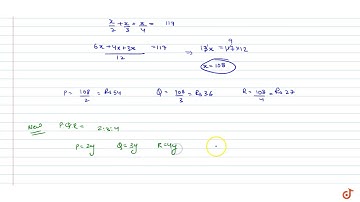 x/2 + x/3 + x/4 = 117
6x+4x+3x/12 = 117 ⇒ 13x = 117×12
9
x=108
P= 108/2 = Rs 54 Q= 108/3 = Rs 36 R= 108/4 = Rs 27
New P:Q:R = 2:3:4
P=2y Q=3y R=4y